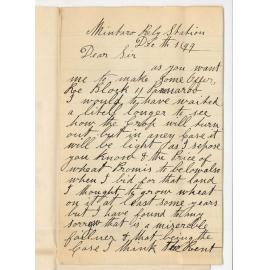 Mintaro Rely Station
Dec th 1899
Dear Sir
as you want
me to make some Offer
Re Block 11 Pinnaroo
I would to have waited
a litel longer to see
how the Crop will turn
out but in aney Case it
will be light as I sopose
you know & the Price of
wheat Promis to be
when I bid for that land
I thought to grow wheat
on it at least some years
but I have found to my
sorrow that is a miserable
failuer & that being the
Case I think the Rent